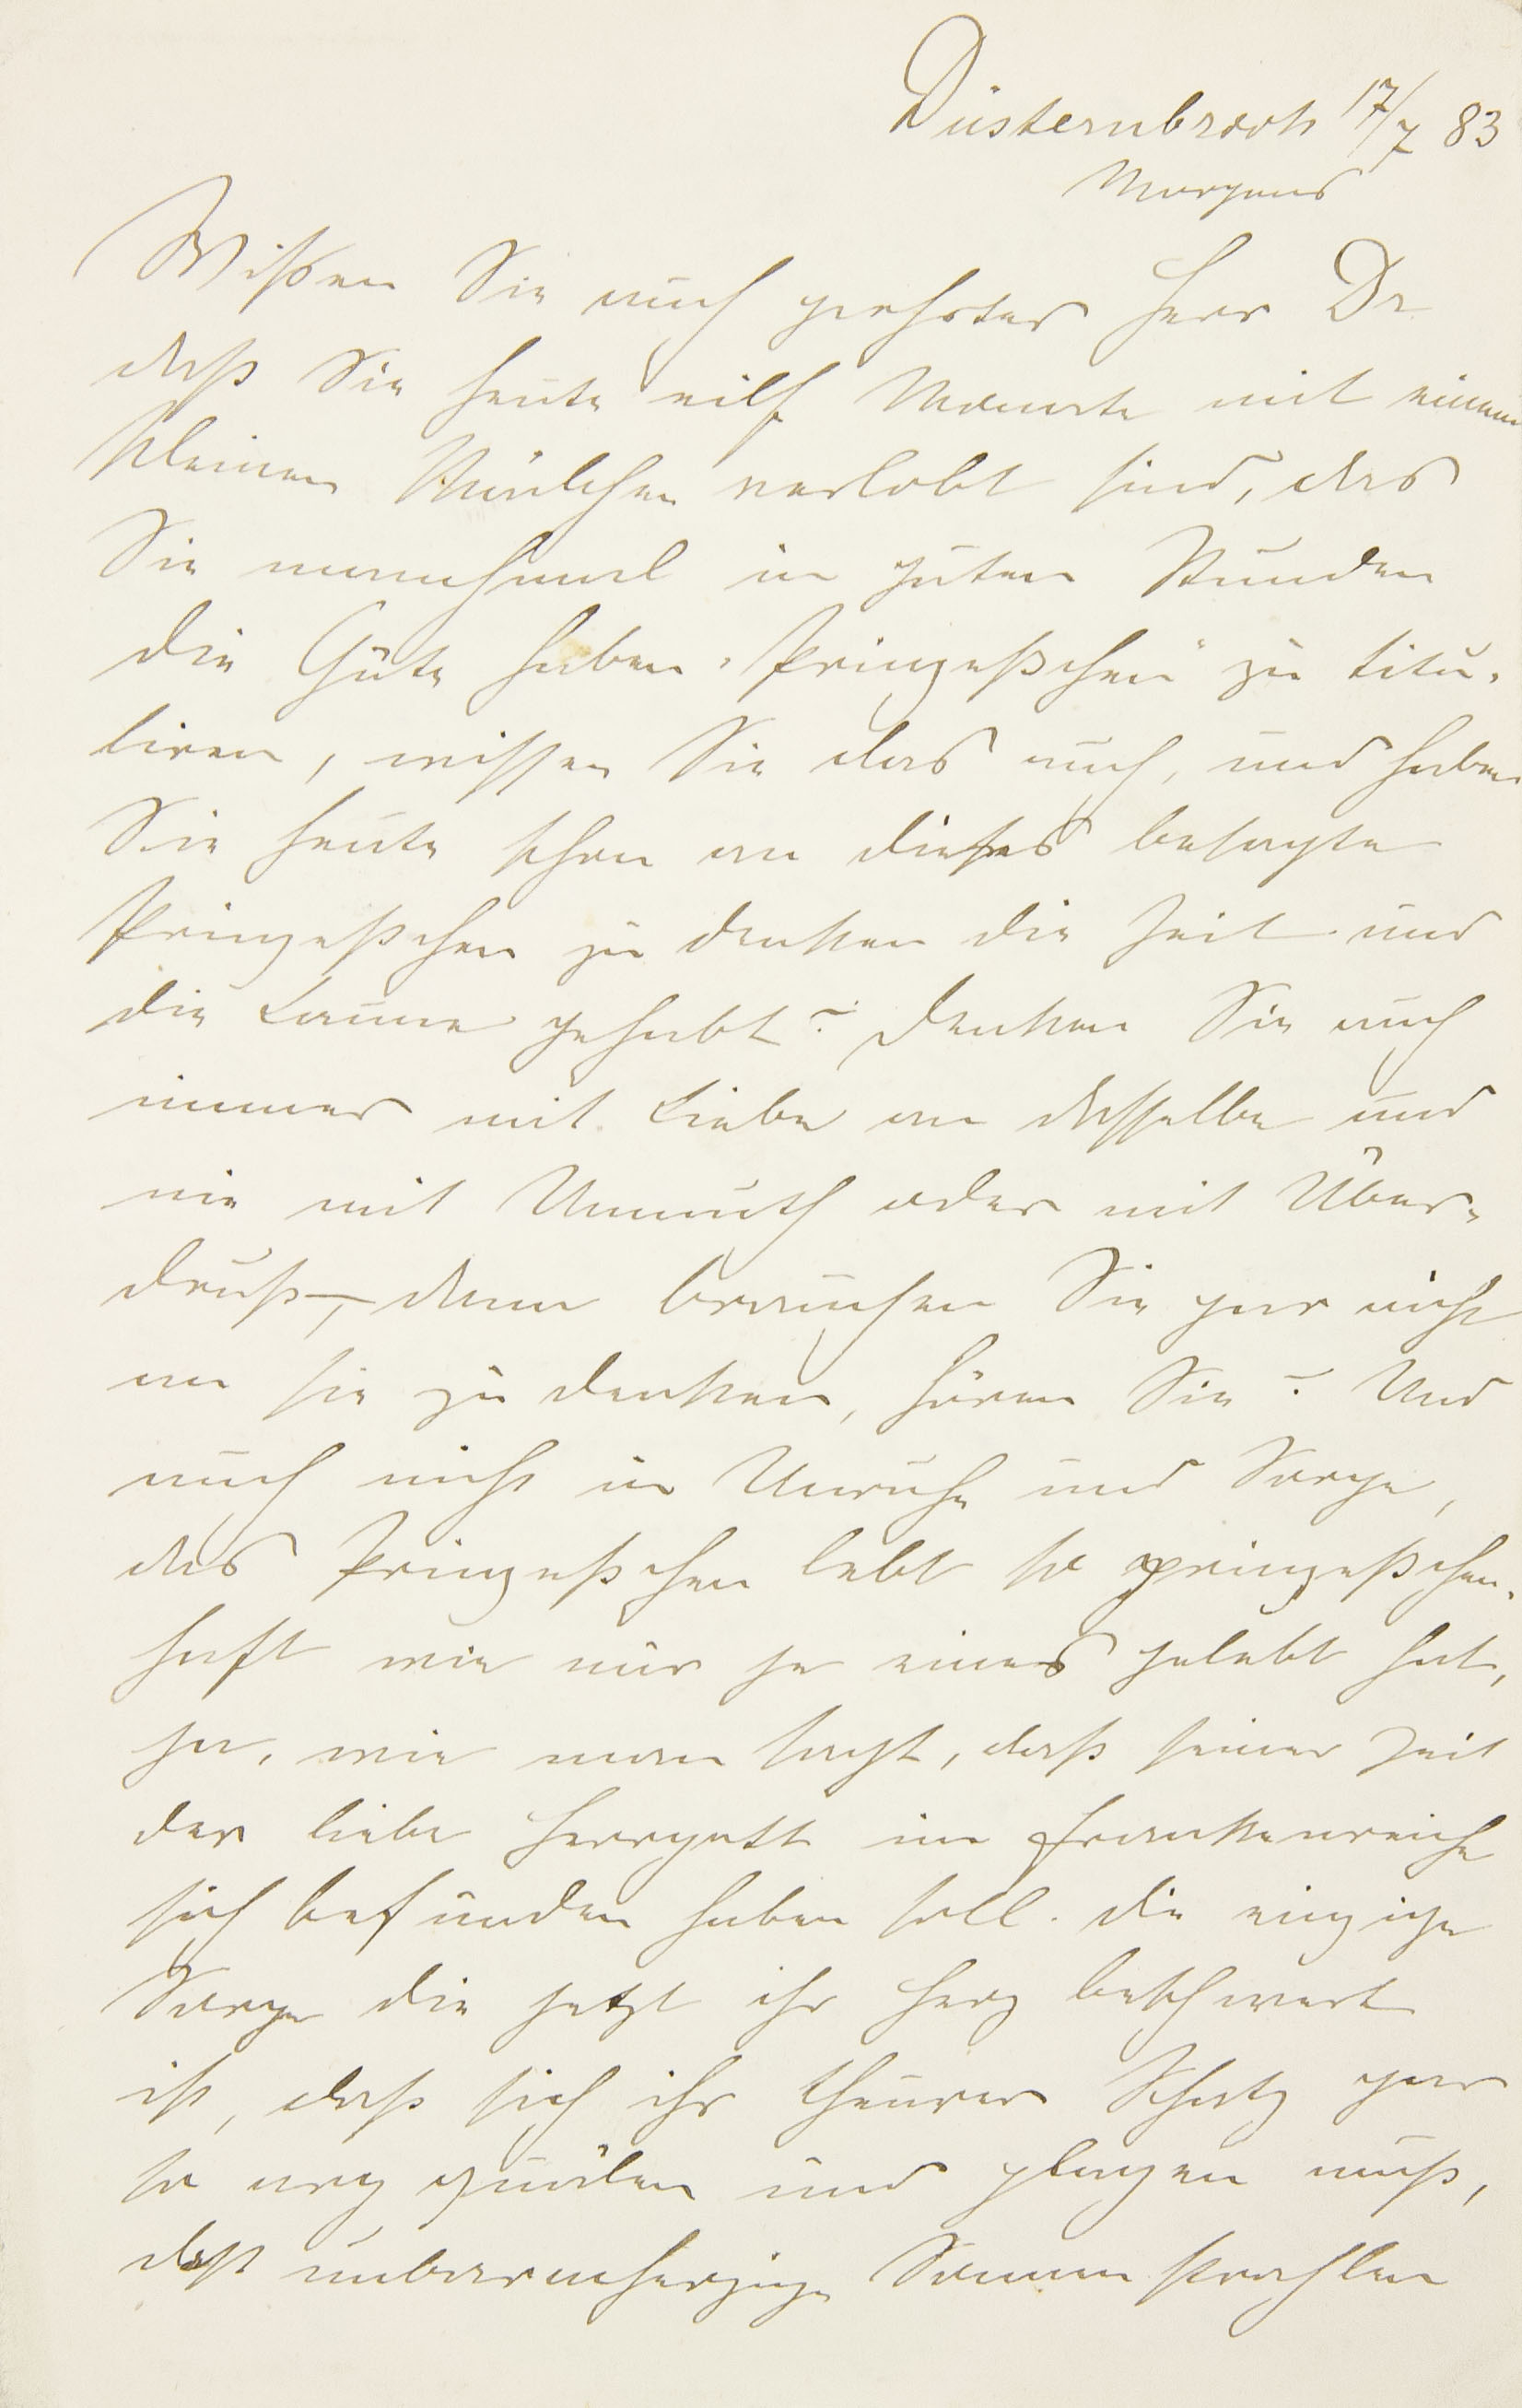 Düsternbrook 17/7 83
Morgens
Wißen Sie auch geehrter Herr Dr
daß Sie heute eilf Monate mit einem
kleinen Mädchen verlobt sind, das
Sie manchmal in guten Stunden
die Güte haben „Prinzeßchen" zu titu-
liren, wissen Sie das auch, und haben
Sie heute schon an dieses besagte
Prinzeßchen zu denken die Zeit und
die Laune gehabt? Denken Sie auch
immer mit Liebe an dasselbe und
nie mit Unmuth oder mit Über-
druß –, dann brauchen Sie gar nicht
an sie zu denken, hören Sie? Und
auch nicht in Unruhe und Sorge,
das Prinzeßchen lebt so prinzeßchen-
haft wie nur je eines gelebt hat,
ja, wie man sagt, daß seiner Zeit
der liebe Herrgott im Frankenreiche
sich befunden haben soll. Die einzige
Sorge die jetzt ihr Herz beschwert
ist, daß sich ihr theurer Schatz gar
so arg quälen und plagen muß,
daß unbarmherzige Sonnenstrahlen